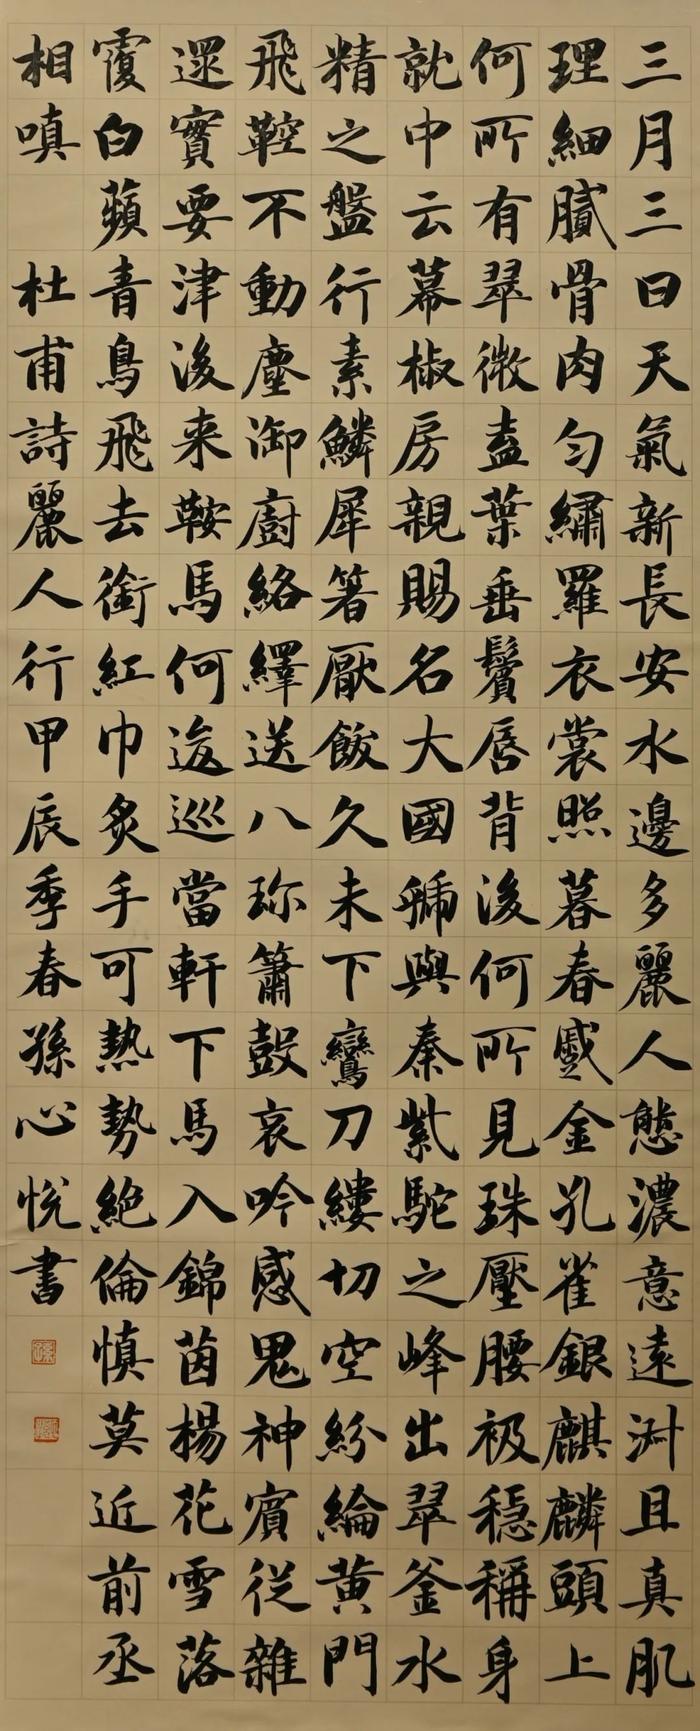 三月三日天氣新長安水邊多麗人態濃意遠淑且真肌
理細膩骨肉勻繡羅衣裳照暮春蹙金孔雀銀麒麟頭上
何所有翠微盍葉垂鬢唇背後何所見珠壓腰衱穩稱身
就中云幕椒房親賜名大國虢與秦紫駝之峰出翠釜水
精之盤行素鱗犀箸厭飫久未下鸞刀縷切空紛綸黃門
飛鞚不動塵御廚絡繹送八珎簫鼓哀吟感鬼神賓從雜
遝實要津後来鞍馬何逡巡當軒下馬入錦茵楊花雪落
覆白蘋青鳥飛去銜紅巾炙手可熱勢絕倫慎莫近前丞
相嗔 杜甫詩麗人行甲辰季春孫心悅書